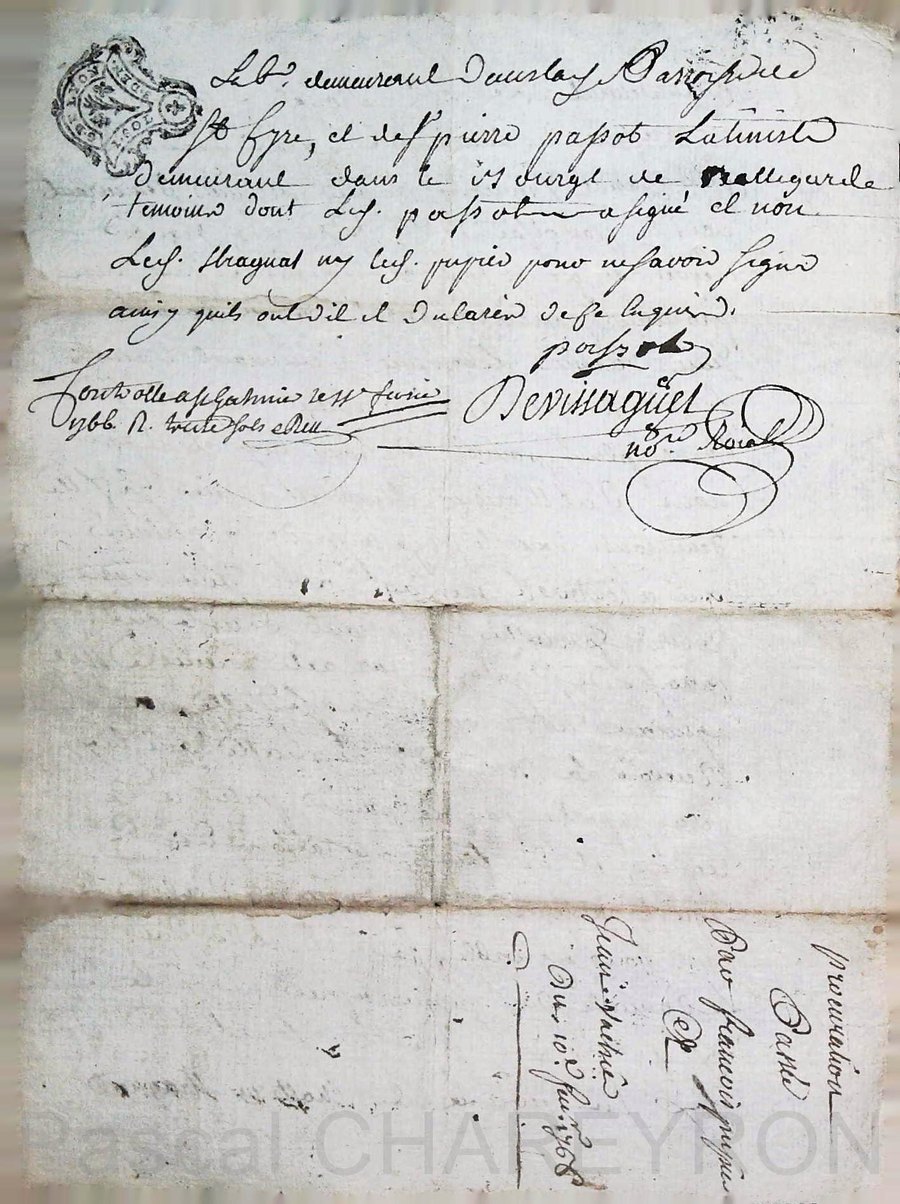 Lab.r demeurant dans lad. Parroisse de
St Eyre, et de Sr pierre passot Latiniste
demeurant dans le Bourgt de Bellegarde
temoins dont Led. passot a signé et non
Led. ny led. pupier pour ne savoir signer
ainsy quils ont dit et declaré de ce Enquis.
passot
Devissaguet
no.re Roial
Controlle a St Galmier le janvier
1766. R. treize sols
procuration
Passé
Par francois pupier
&
Du 10. janv. 1766
Pascal CHAREYRON